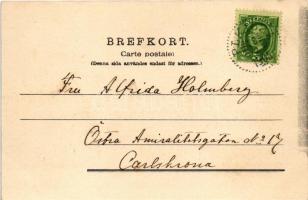 BREFKORT.
Carte postale:
(Denna sida användes endast för adressen.)
Fru Alfrida Holmberg
Östra Amiralitetsgatan No 17
Carlskrona